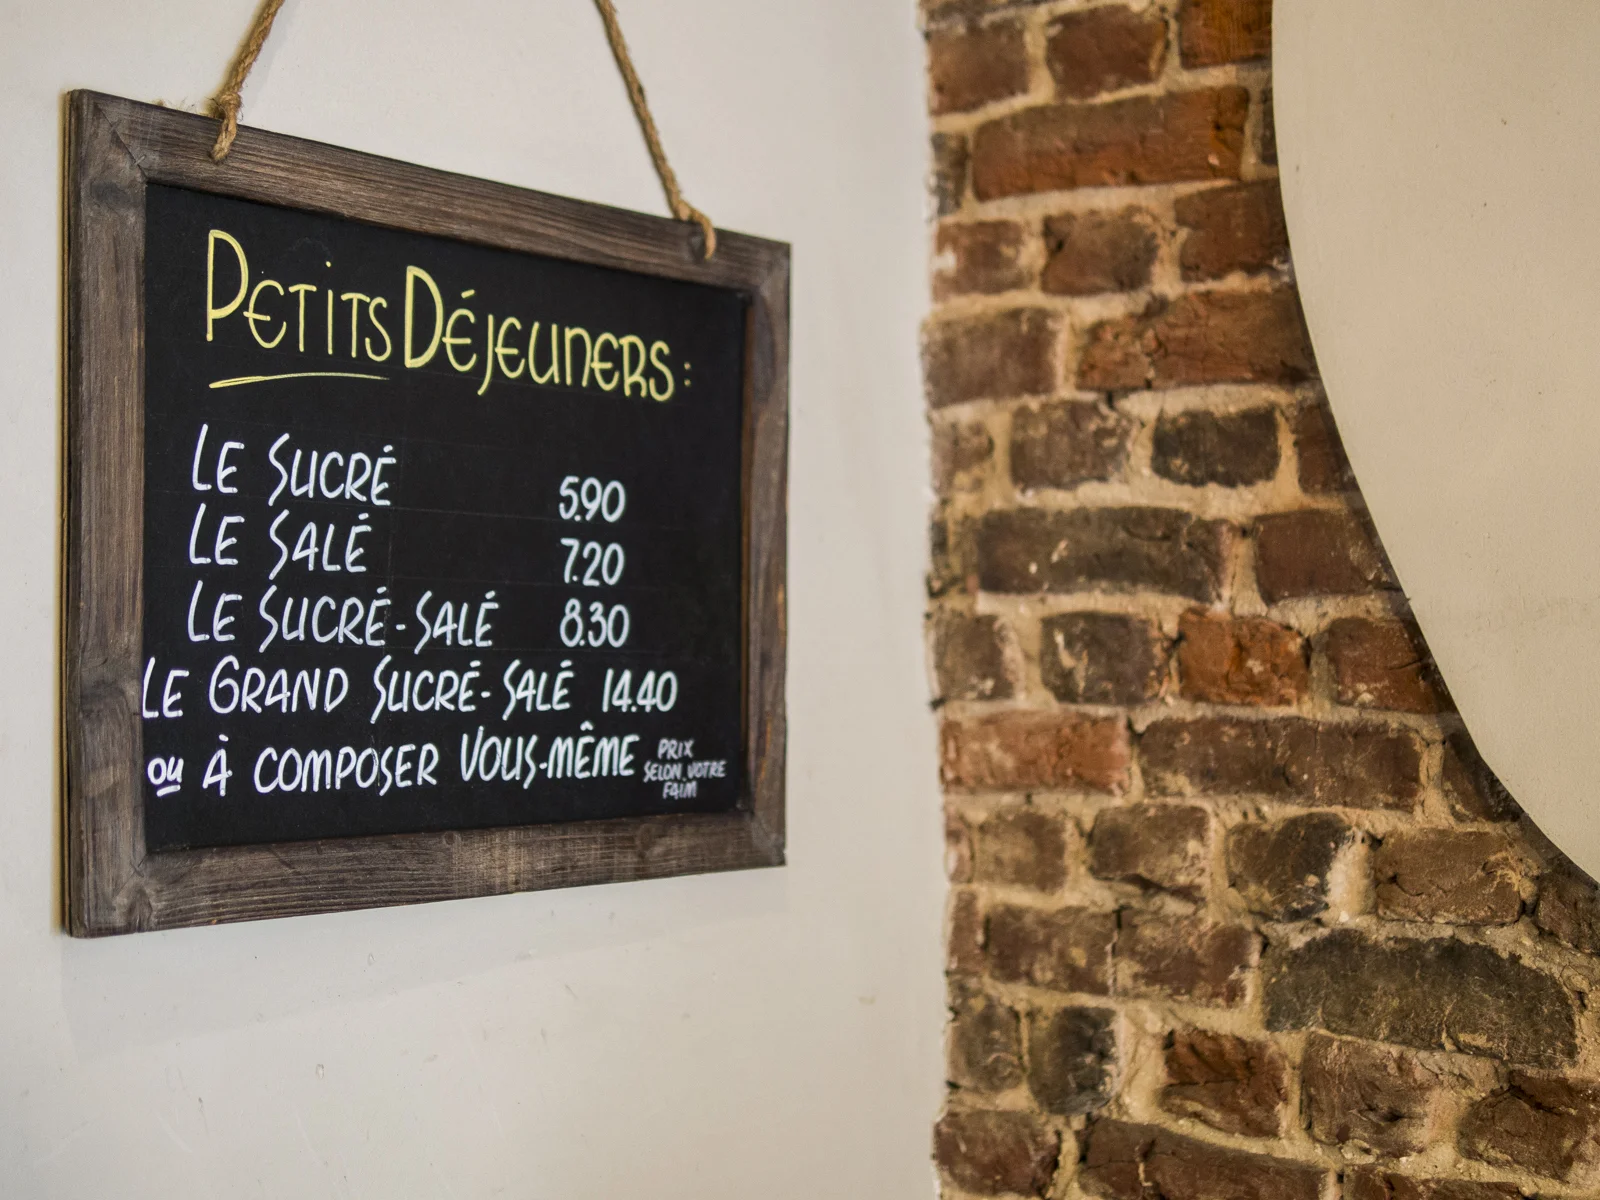 PETITS DÉJEUNERS :
LE SUCRÉ 5.90
LE SALÉ 7.20
LE SUCRÉ-SALÉ 8.30
LE GRAND SUCRÉ-SALÉ 14.40
OU À COMPOSER VOUS-MÊME PRIX
SELON VOTRE
FAIM